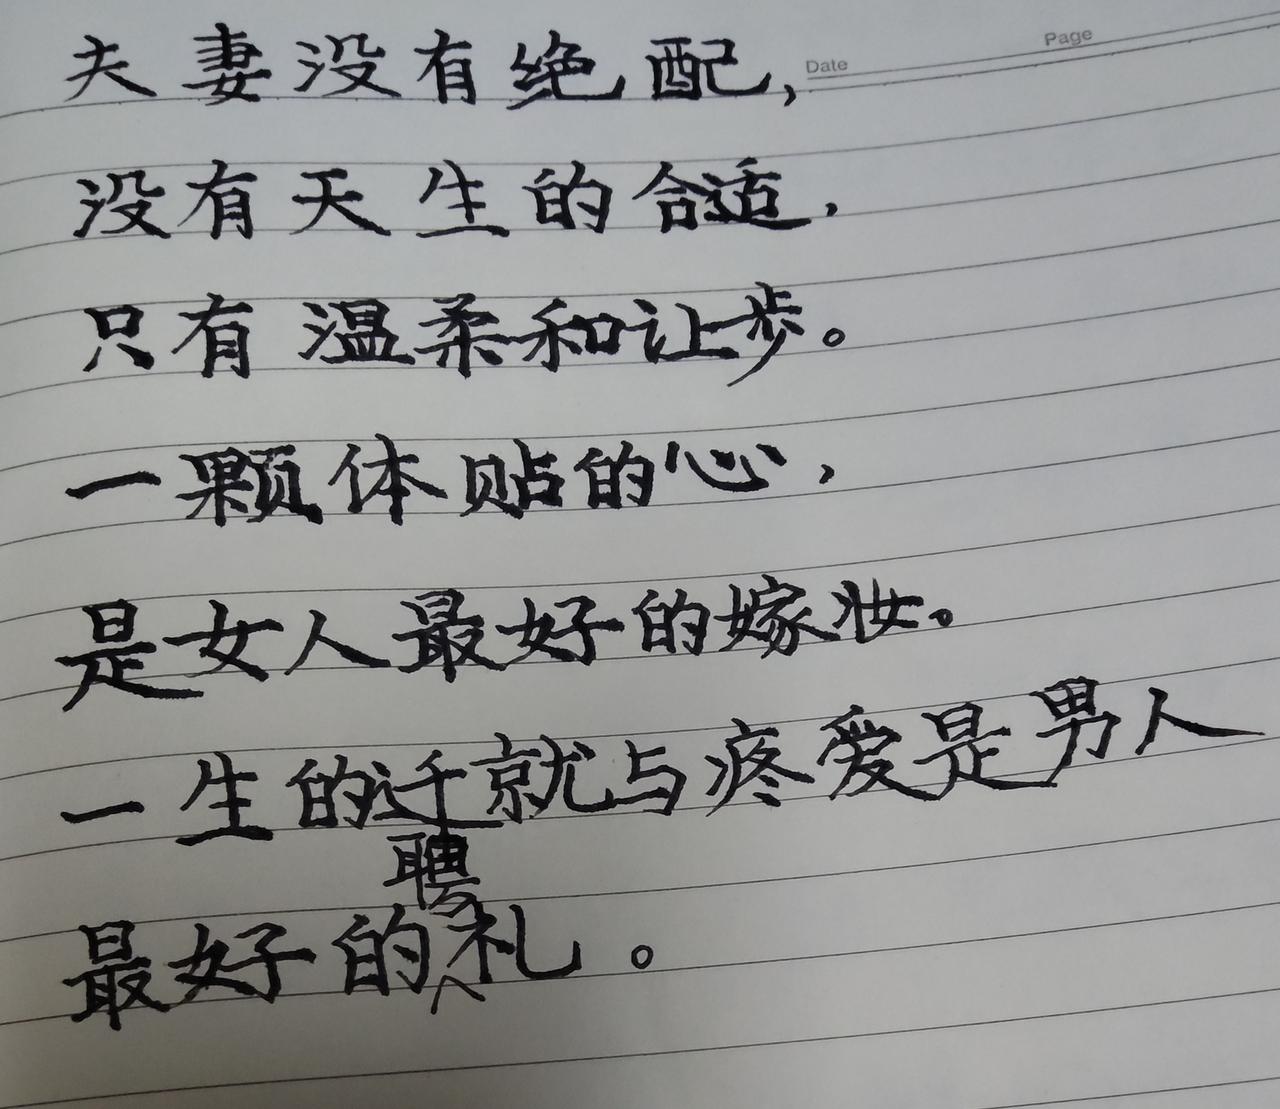 Page
Date
夫妻没有绝配，
没有天生的合适，
只有温柔和让步。
一颗体贴的心，
是女人最好的嫁妆。
一生的迁就与疼爱是男人
最好的聘礼。